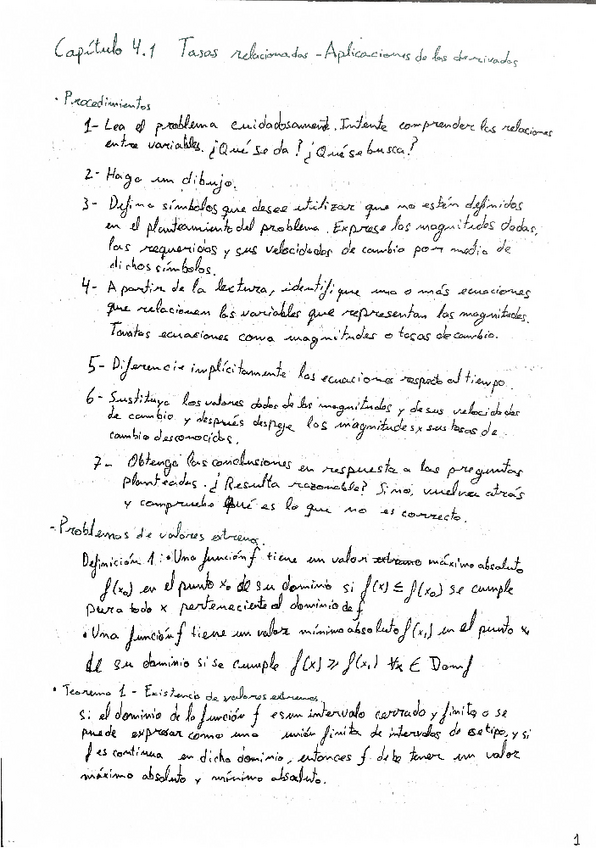 Capítulo 4.1 Tasas relacionadas - Aplicaciones de las derivadas
· Procedimientos
1- Lea el problema cuidadosamente. Intente comprender las relaciones
entre variables. ¿Qué se da? ¿Qué se busca?
2- Haga un dibujo.
3- Defina símbolos que desee utilizar que no estén definidos
en el planteamiento del problema. Exprese las magnitudes dadas,
las requeridas y sus velocidades de cambio por medio de
dichos símbolos.
4- A partir de la lectura, identifique una o más ecuaciones
que relacionen las variables que representan las magnitudes.
Tantas ecuaciones como magnitudes o tasas de cambio.
5- Diferencie implícitamente las ecuaciones respecto al tiempo.
6- Sustituya los valores dados de las magnitudes y de sus velocidades
de cambio y después despeje las magnitudes x sus tasas de
cambio desconocidas.
7- Obtenga las conclusiones en respuesta a las preguntas
planteadas. ¿Resulta razonable? Si no, vuelva atrás
y compruebe qué es lo que no es correcto.
- Problemas de valores extremos.
Definición 1: • Una función f tiene un valor extremo máximo absoluto
f(x₀) en el punto x₀ de su dominio si f(x) ≤ f(x₀) se cumple
para todo x perteneciente al dominio de f
• Una función f tiene un valor mínimo absoluto f(x₁) en el punto x₁
de su dominio si se cumple f(x) ≥ f(x₁) ∀x ∈ Dom f
• Teorema 1 - Existencia de valores extremos.
si el dominio de la función f es un intervalo cerrado y finito o se
puede expresar como una unión finita de intervalos de ese tipo, y si
f es continua en dicho dominio, entonces f debe tener un valor
máximo absoluto y mínimo absoluto.
1